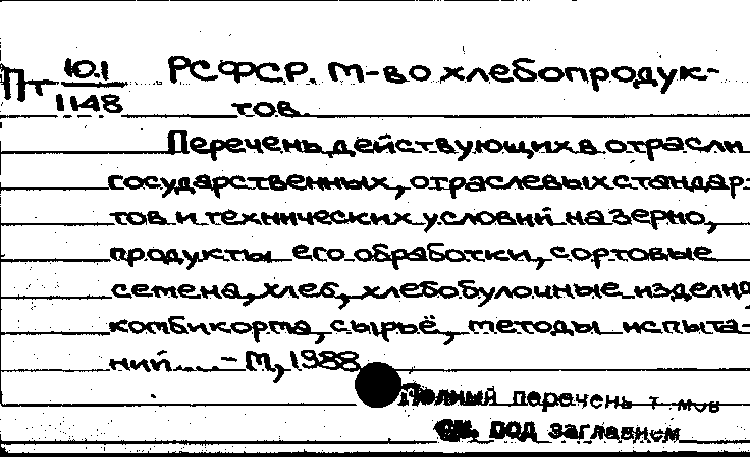 Пт 10.1 РСФСР. М-во хлебопродук-
1148 тов.
Перечень действующих в отрасли
государственных, отраслевых стандар-
тов и технических условий на зерно,
продукты его обработки, сортовые
семена, хлеб, хлебобулочные изделия,
комбикорма, сырьё, методы испыта-
ний... - М, 1988
Полный перечень т мов
см. под заглавием